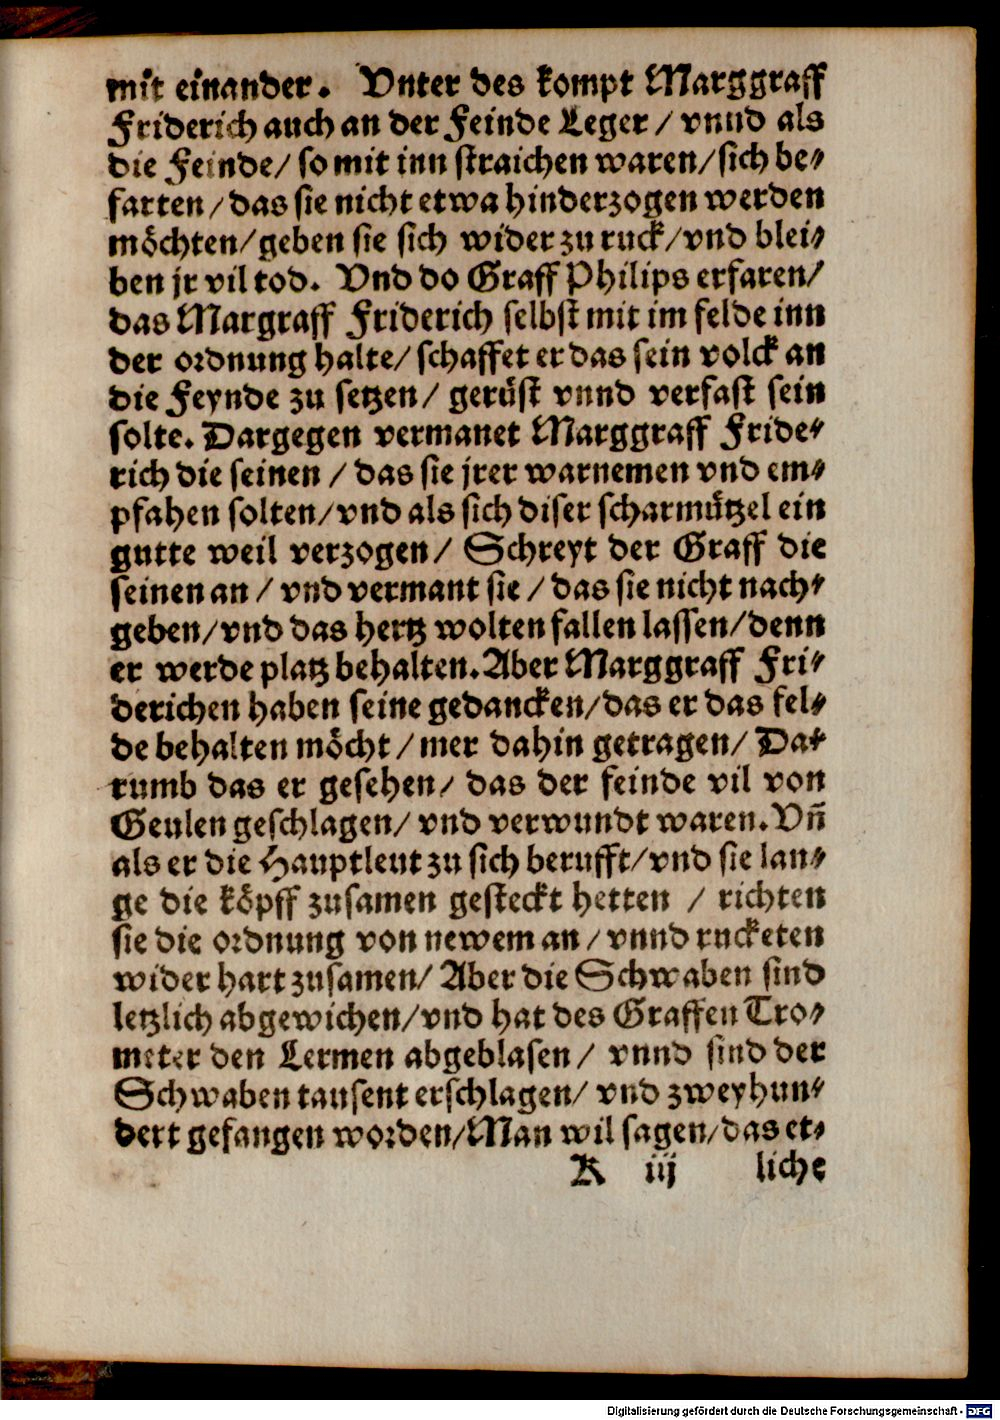 mit einander. Vnter des kompt Marggraff
Friderich auch an der Feinde Leger / vnnd als
die Feinde / so mit inn straichen waren / sich be⸗
farten / das sie nicht etwa hinderzogen werden
möchten / geben sie sich wider zu ruck / vnd blei⸗
ben jr vil tod. Vnd do Graff Philips erfaren /
das Margraff Friderich selbst mit im felde inn
der ordnung halte / schaffet er das sein volck an
die Feynde zu setzen / gerüst vnnd verfast sein
solte. Dargegen vermanet Marggraff Fride⸗
rich die seinen / das sie jrer warnemen vnd em⸗
pfahen solten / vnd als sich diser scharmützel ein
gutte weil verzogen / Schreyt der Graff die
seinen an / vnd vermant sie / das sie nicht nach⸗
geben / vnd das hertz wolten fallen lassen / denn
er werde platz behalten. Aber Marggraff Fri⸗
derichen haben seine gedancken / das er das fel⸗
de behalten möcht / mer dahin getragen / Da⸗
rumb das er gesehen / das der feinde vil von
Geulen geschlagen / vnd verwundt waren. Vn̄
als er die Hauptleut zu sich berufft / vnd sie lan⸗
ge die köpff zusamen gesteckt hetten / richten
sie die ordnung von newem an / vnnd rucketen
wider hart zusamen / Aber die Schwaben sind
letzlich abgewichen / vnd hat des Graffen Tro⸗
meter den Lermen abgeblasen / vnnd sind der
Schwaben tausent erschlagen / vnd zweyhun⸗
dert gefangen worden / Man wil sagen / das et⸗
K iij liche
Digitalisierung gefördert durch die Deutsche Forschungsgemeinschaft - DFG